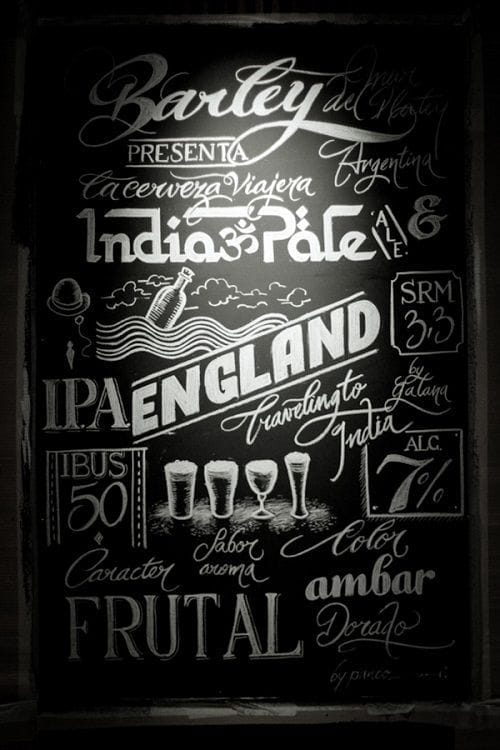 Barley
del
PRESENTA
Argentina
La cerveza Viajera
India ॐ Pale ALE &
SRM
3,3
ENGLAND
I.P.A
traveling to
India
by
IBUS
50
ALC.
7%
Sabor
aroma
Color
Caracter
ambar
FRUTAL
Dorado
by